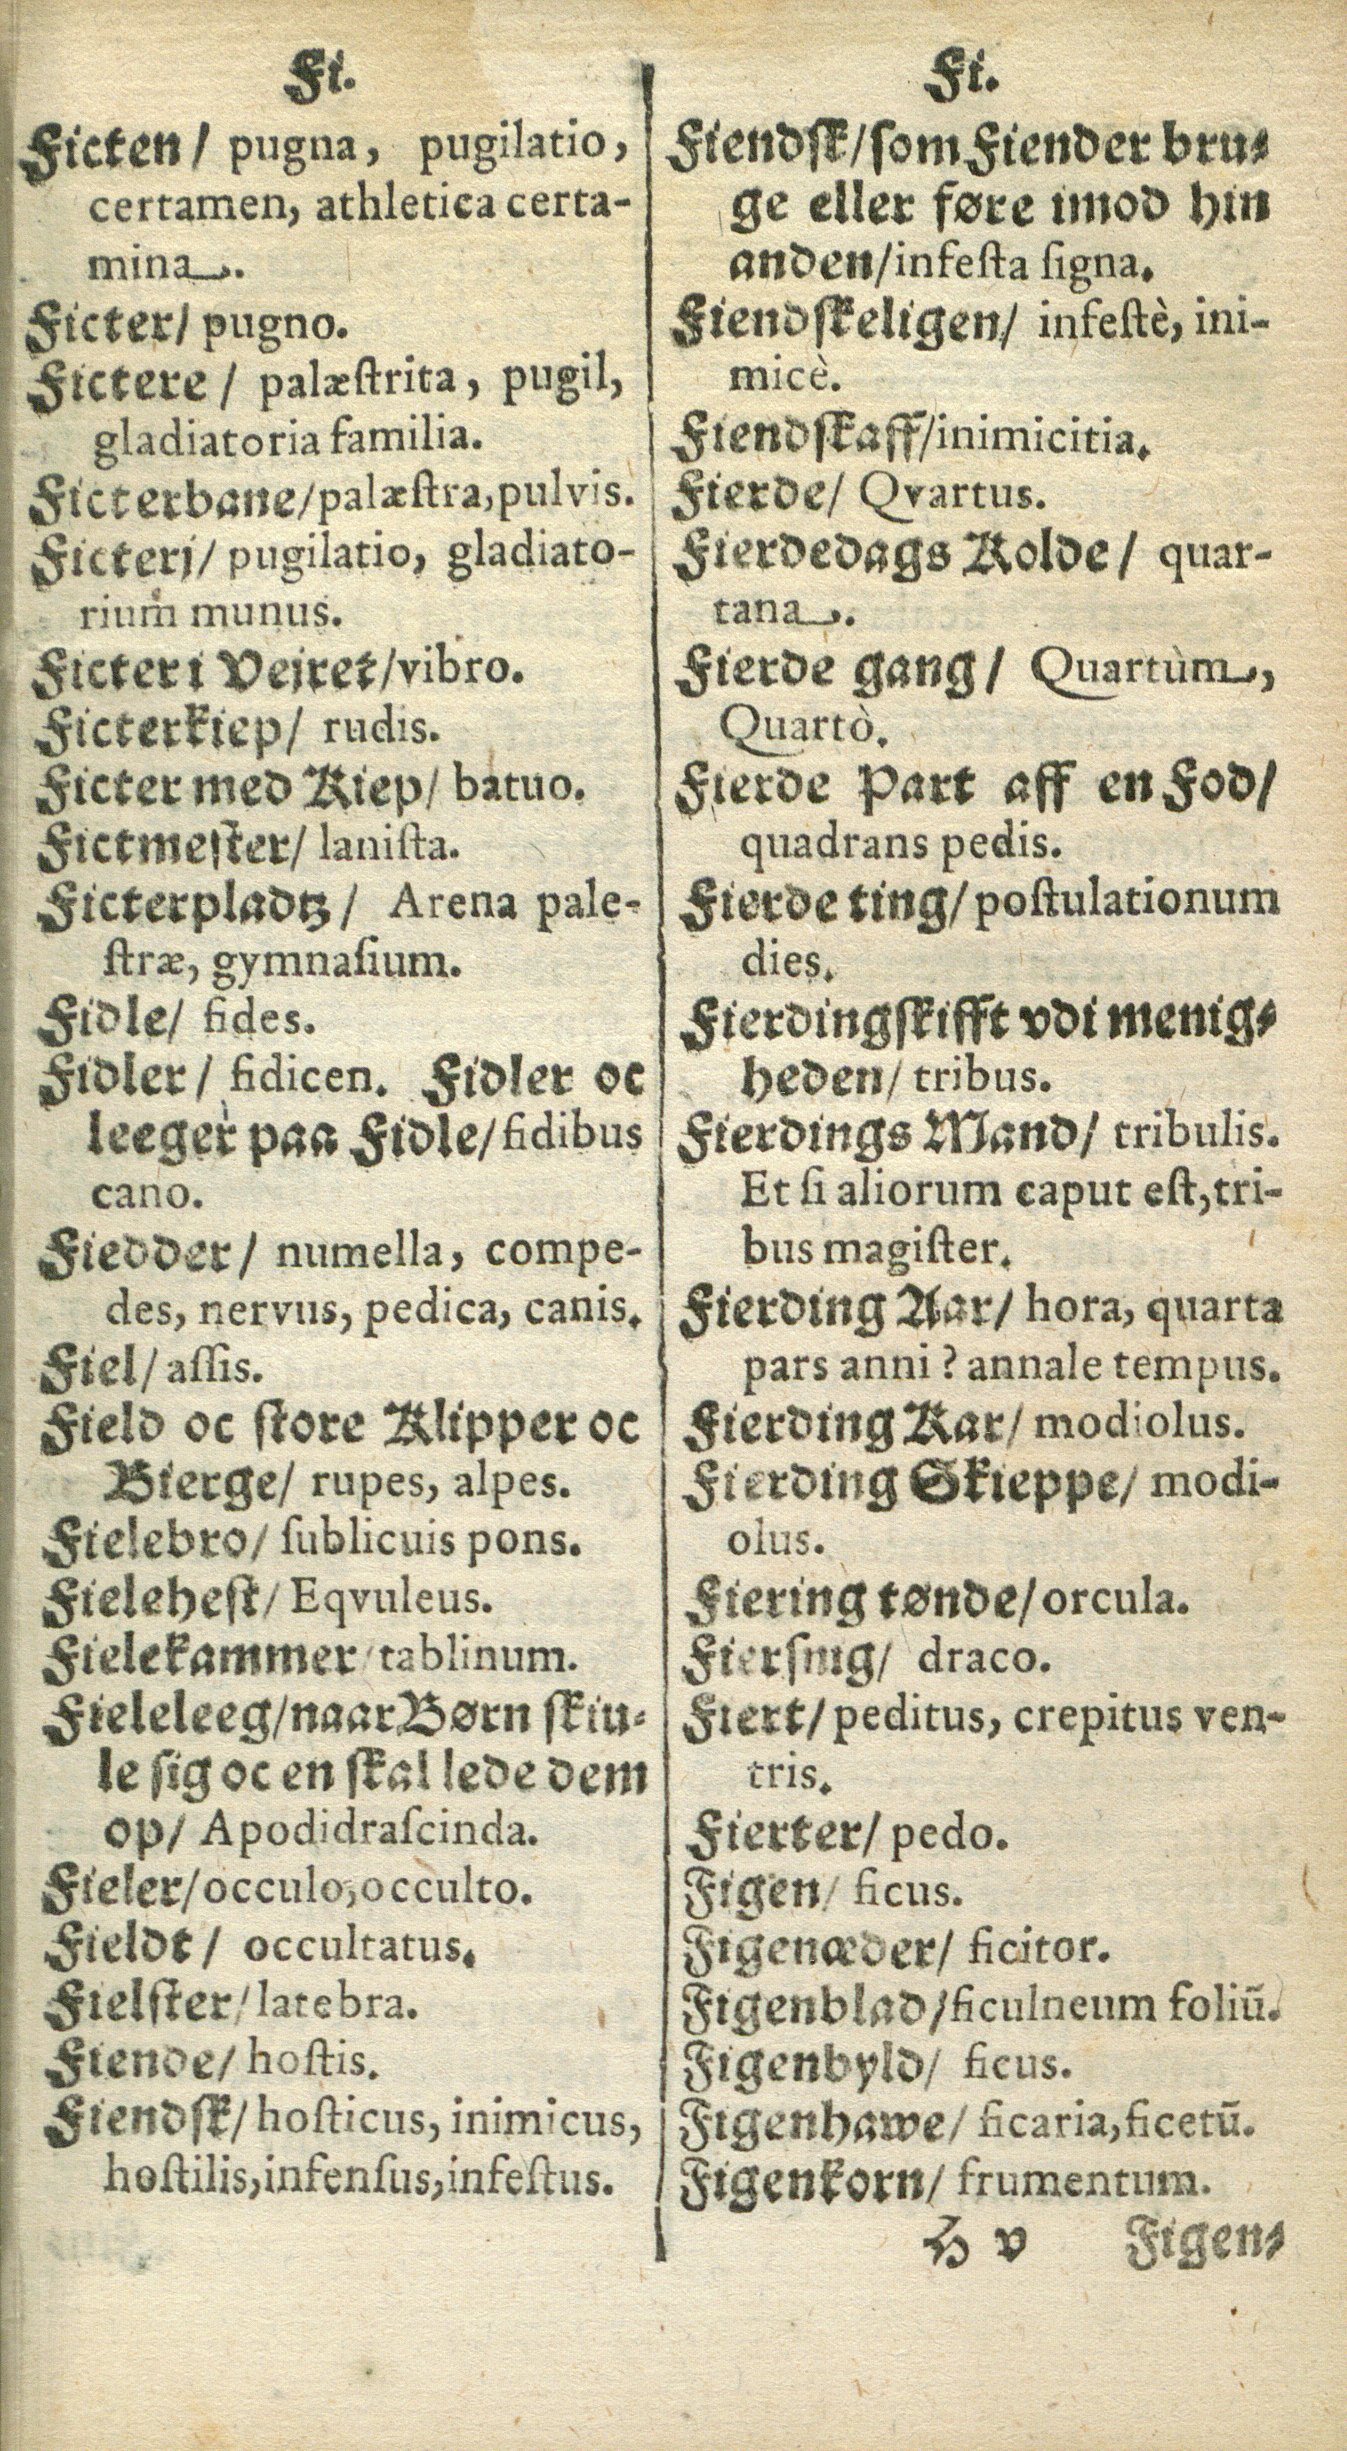 Fi.
Ficten / pugna, pugilatio,
certamen, athletica certa-
mina.
Ficter/ pugno.
Fictere / palæſtrita, pugil,
gladiatoria familia.
Ficterbane/palæſtra,pulvis.
Ficterj/ pugilatio, gladiato-
rium munus.
Ficter i Vejret/vibro.
Ficterkiep/ rudis.
Ficter med Kiep/ batuo.
Fictmeſter/ laniſta.
Ficterpladtz / Arena pale-
ſtræ, gymnaſium.
Fidle/ fides.
Fidler / fidicen. Fidler oc
leeger paa Fidle/fidibus
cano.
Fiedder/ numella, compe-
des, nervus, pedica, canis.
Fiel/ aſſis.
Field oc ſtore Klipper oc
Bierge/ rupes, alpes.
Fielebro/ ſublicuis pons.
Fieleheſt/ Eqvuleus.
Fielekammer/tablinum.
Fieleleeg/naar Børn ſkiu⸗
le ſig oc en ſkal lede dem
op/ Apodidraſcinda.
Fieler/occulo,occulto.
Fieldt / occultatus.
Fielſter/latebra.
Fiende/ hoſtis.
Fiendſk/ hoſticus, inimicus,
hoſtilis,infenſus,infeſtus.
Fi.
Fiendſk/ſom Fiender bru⸗
ge eller føre imod hin
anden/infeſta ſigna.
Fiendſkeligen/ infeſtè, ini-
micè.
Fiendſkaff/inimicitia.
Fierde/ Qvartus.
Fierdedags Kolde / quar-
tana.
Fierde gang / Quartùm,
Quartò.
Fierde Part aff en Fod/
quadrans pedis.
Fierde ting/ poſtulationum
dies.
Fierdingſkifft vdi menig⸗
heden/ tribus.
Fierdings Mand/ tribulis.
Et ſi aliorum caput eſt,tri-
bus magiſter.
Fierding Aar/ hora, quarta
pars anni ? annale tempus.
Fierding Kar/ modiolus.
Fierding Skieppe/ modi-
olus.
Fiering tønde/ orcula.
Fierſing/ draco.
Fiert/ peditus, crepitus ven-
tris.
Fierter/ pedo.
Figen/ ficus.
Figenæder/ ficitor.
Figenblad/ficulneum foliū.
Figenbyld/ ficus.
Figenhawe/ ficaria,ficetū.
Figenkorn/ frumentum.
H v Figen⸗